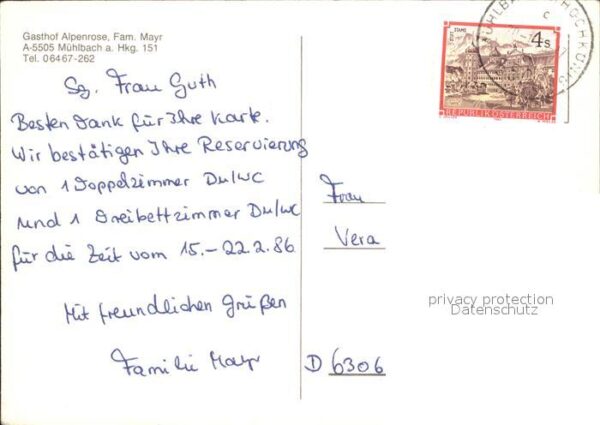 Gasthof Alpenrose, Fam. Mayr
A-5505 Mühlbach a. Hkg. 151
Tel. 06467-262
Sg. Frau Guth
Besten Dank für Ihre Karte.
Wir bestätigen Ihre Reservierung
von 1 Doppelzimmer Du/WC
und 1 Dreibettzimmer Du/WC
für die Zeit vom 15.-22.2.86
Mit freundlichen Grüßen
Familie Mayr
STIFT STAMS
4 S
REPUBLIK ÖSTERREICH
MÜHLBACH HOCHKÖNIG
Frau
Vera
privacy protection
Datenschutz
D 6306